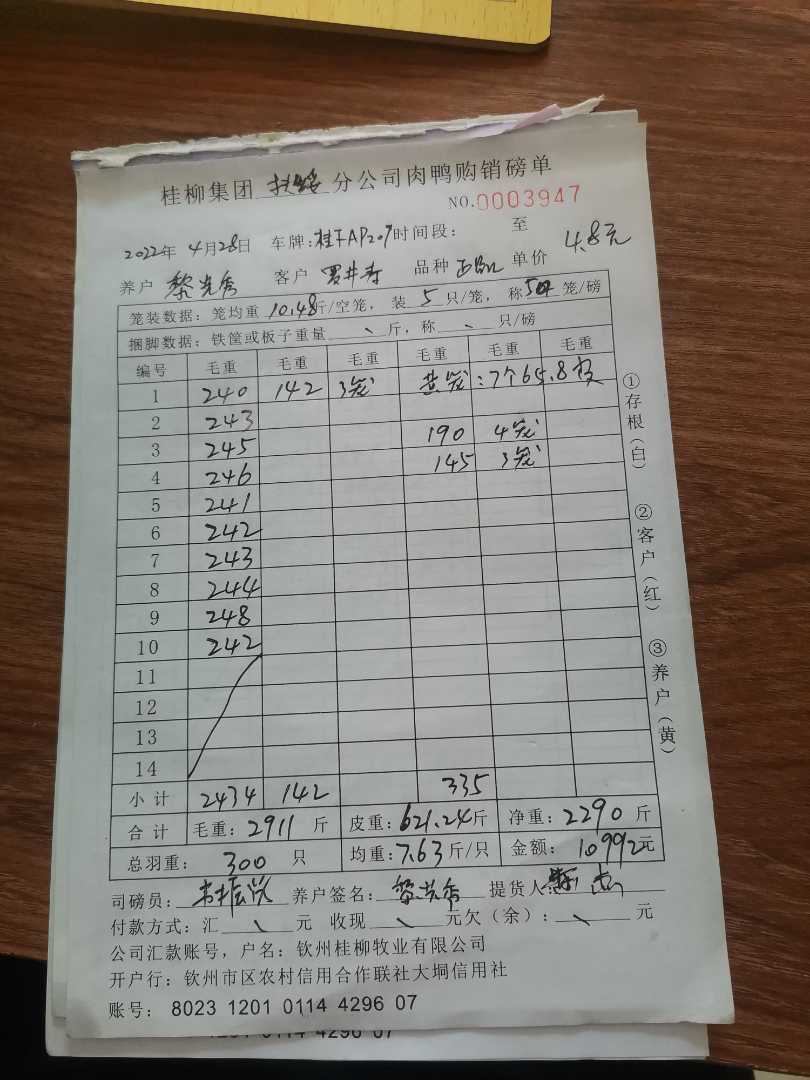 桂柳集团 扶绥 分公司肉鸭购销磅单
NO.0003947
2022年 4月28日 车牌:桂 AP207 时间段: 至
养户 黎光秀 客户 罗井寿 品种 单价 4.8元
笼装数据: 笼均重 10.48斤/空笼, 装 5 只/笼, 称 笼/磅
捆脚数据: 铁筐或板子重量 、 斤, 称 、 只/磅
编号 毛重 毛重 毛重 毛重 毛重 毛重
1 240 142 3笼 黄笼:7个65.8
2 243
3 245 190 4笼
4 246 145 3笼
5 241
6 242
7 243
8 244
9 248
10 242
11
12
13
14
小计 2434 142 335
合计 毛重: 2911 斤 皮重: 621.24斤 净重: 2290 斤
总羽重: 300 只 均重: 7.63 斤/只 金额: 10992元
司磅员: 养户签名: 黎光秀 提货人:
付款方式: 汇 、 元 收现 、 元欠（余）: 、 元
公司汇款账号, 户名: 钦州桂柳牧业有限公司
开户行: 钦州市区农村信用合作联社大垌信用社
账号: 8023 1201 0114 4296 07
①存根（白） ②客户（红） ③养户（黄）
1201 0114 4296 07